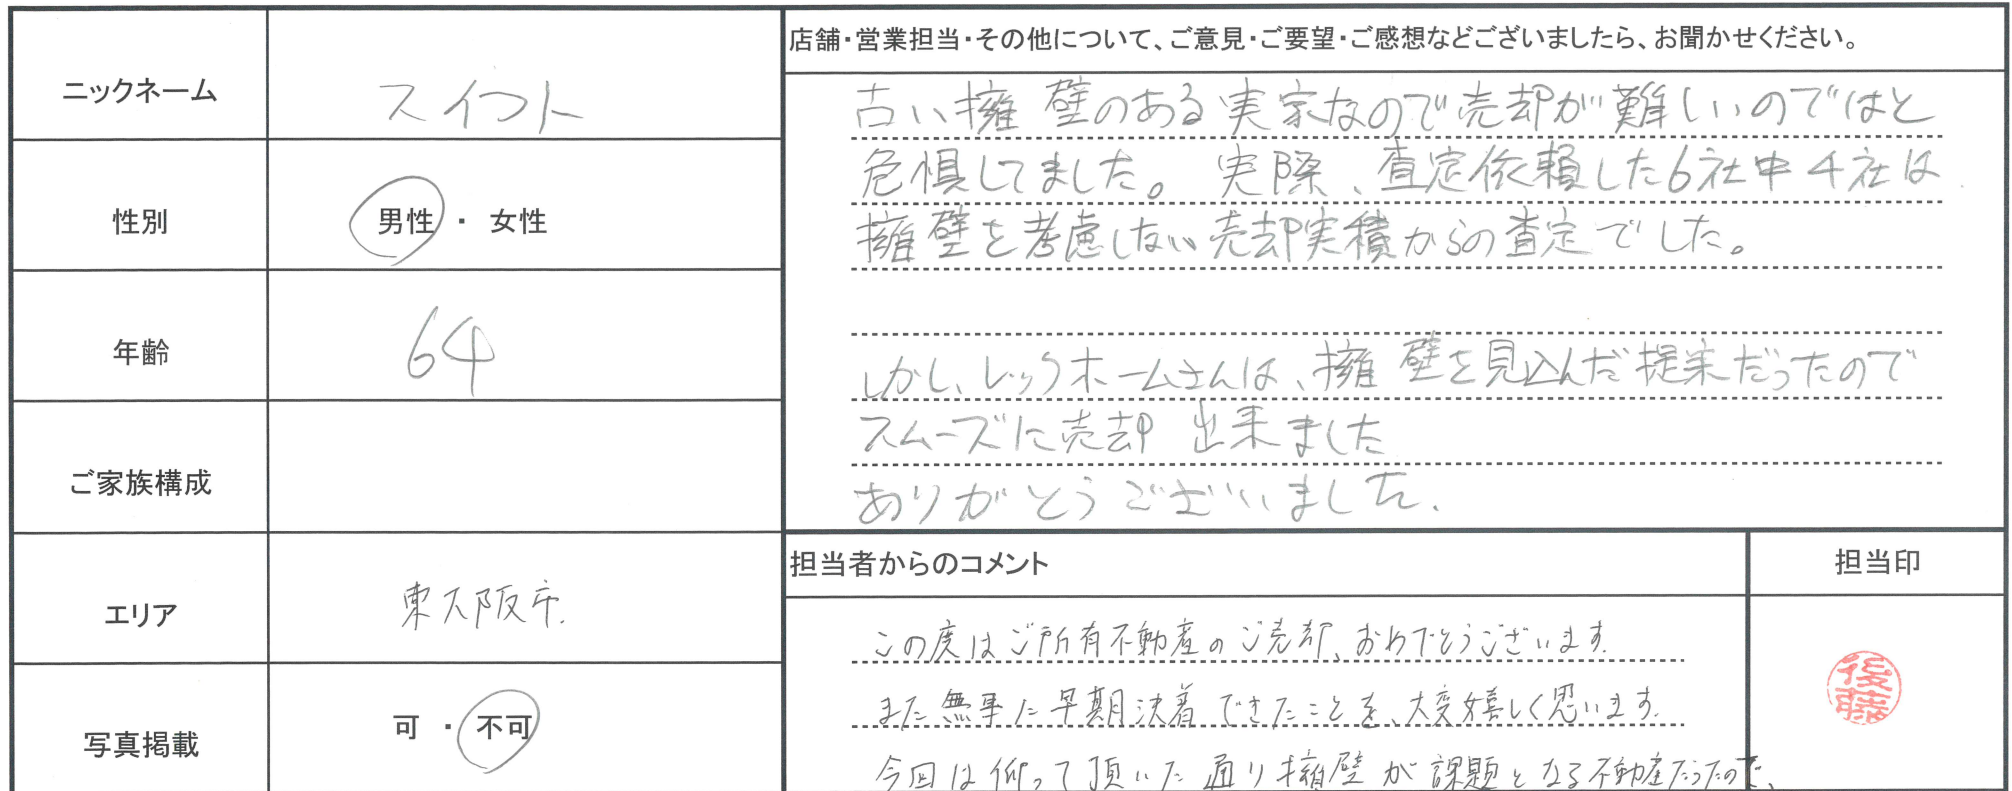 ニックネーム
スイフト
性別
男性 ・ 女性
年齢
64
ご家族構成
エリア
東大阪市.
写真掲載
可 ・ 不可
店舗・営業担当・その他について、ご意見・ご要望・ご感想などございましたら、お聞かせください。
古い擁壁のある実家なので売却が難しいのではと
危惧してました。実際、査定依頼した6社中4社は
擁壁を考慮しない売却実積からの査定でした。
しかし、レックホームさんは、擁壁を見込んだ提案だったので
スムーズに売却出来ました
ありがとうございました.
担当者からのコメント
この度はご所有不動産のご売却、おめでとうございます.
また無事に早期決着できたことを、大変嬉しく思います.
今回は仰って頂いた通り擁壁が課題となる不動産だったので、
担当印
後藤